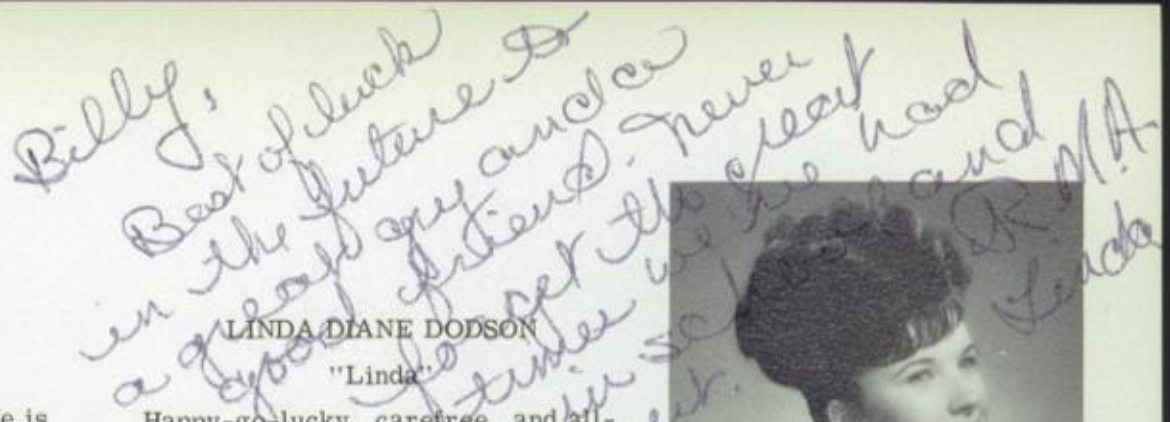 Billy,
Best of luck
in the future to
a great guy and a
good friend. Never
forget the great
times we've had
in school and
out.
R.M.A.
Linda
LINDA DIANE DODSON
"Linda"
e is
Happy-go-lucky, carefree, and all-